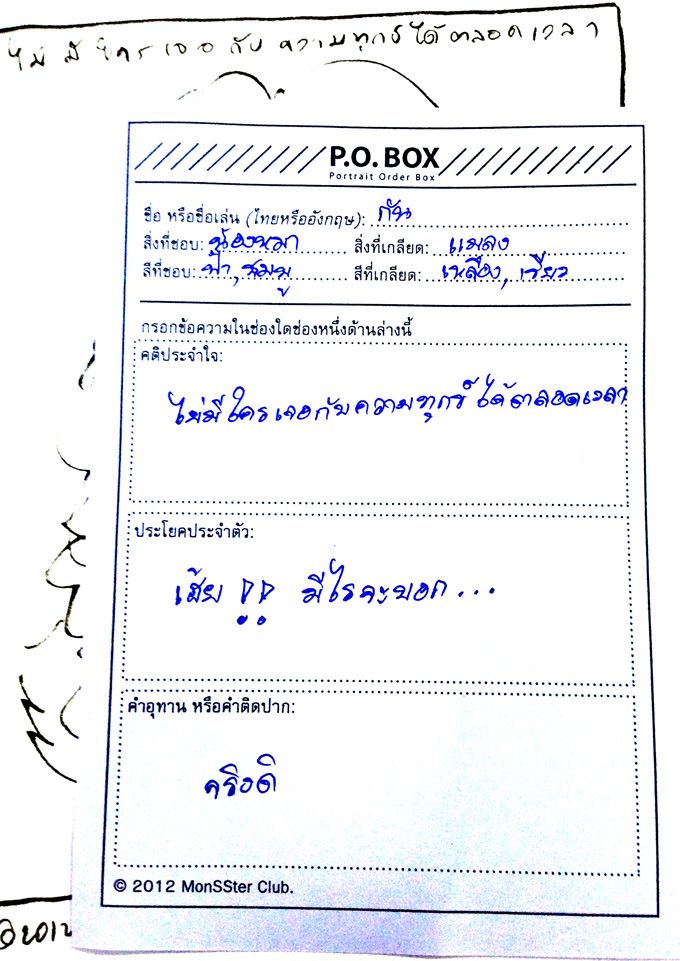 ไม่มีใครเจอกับความทุกข์ได้ตลอดเวลา
P.O. BOX
Portrait Order Box
ชื่อ หรือชื่อเล่น (ไทยหรืออังกฤษ): กัน
สิ่งที่ชอบ: น้องหมา สิ่งที่เกลียด: แมลง
สีที่ชอบ: ฟ้า, ชมพู สีที่เกลียด: เหลือง, เขียว
กรอกข้อความในช่องใดช่องหนึ่งด้านล่างนี้
คติประจำใจ:
ไม่มีใครเจอกับความทุกข์ได้ตลอดเวลา
ประโยคประจำตัว:
เฮ้ย !! มีไรจะบอก...
คำอุทาน หรือคำติดปาก:
จริงดิ
© 2012 MonSSter Club.